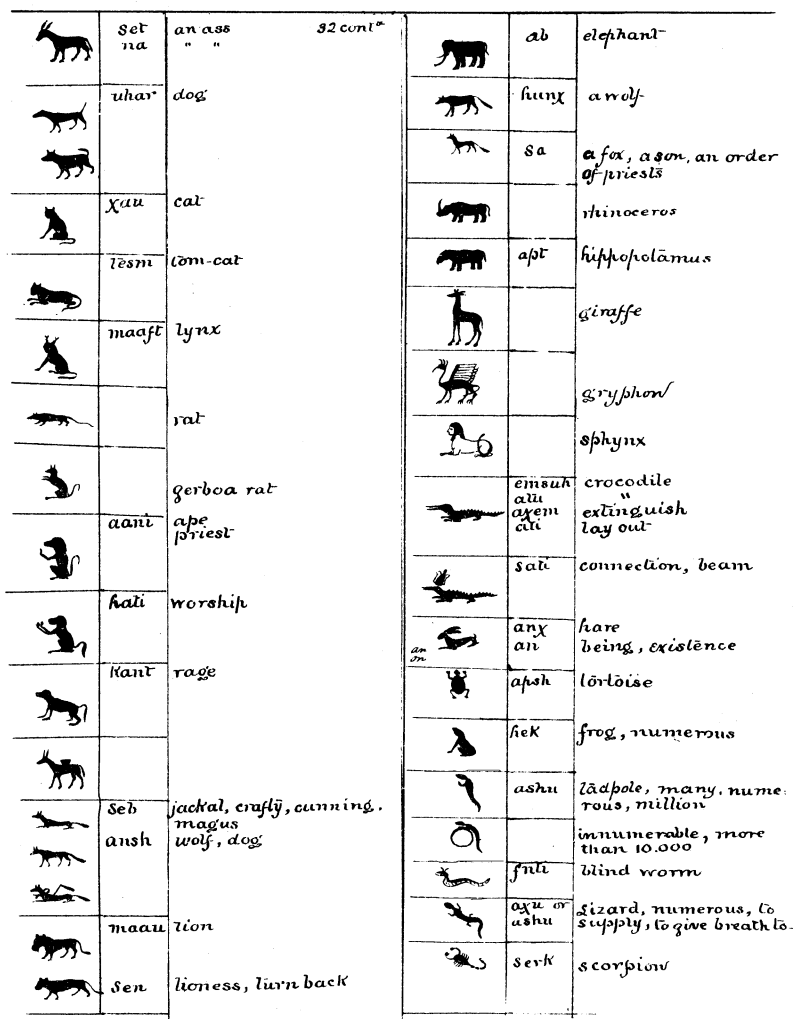 set an ass 32 contd
na " "
uhar dog
χau cat
tesm tom-cat
maaft lynx
rat
gerboa rat
aani ape
priest
hati worship
kant rage
seb jackal, crafty, cunning,
magus
ansh wolf, dog
maau lion
sen lioness, turn back
ab elephant
hunχ a wolf
sa a fox, a son, an order
of priests
rhinoceros
apt hippopotamus
giraffe
gryphon
sphynx
emsuh crocodile
"
aχem extinguish
lay out
sati connection, beam
anχ hare
an being, existence
an
on
apsh tortoise
hek frog, numerous
ashu tadpole, many, nume:
rous, million
innumerable, more
than 10.000
fnti blind worm
aχu or Lizard, numerous, to
ushu supply, to give breath to
serk scorpion